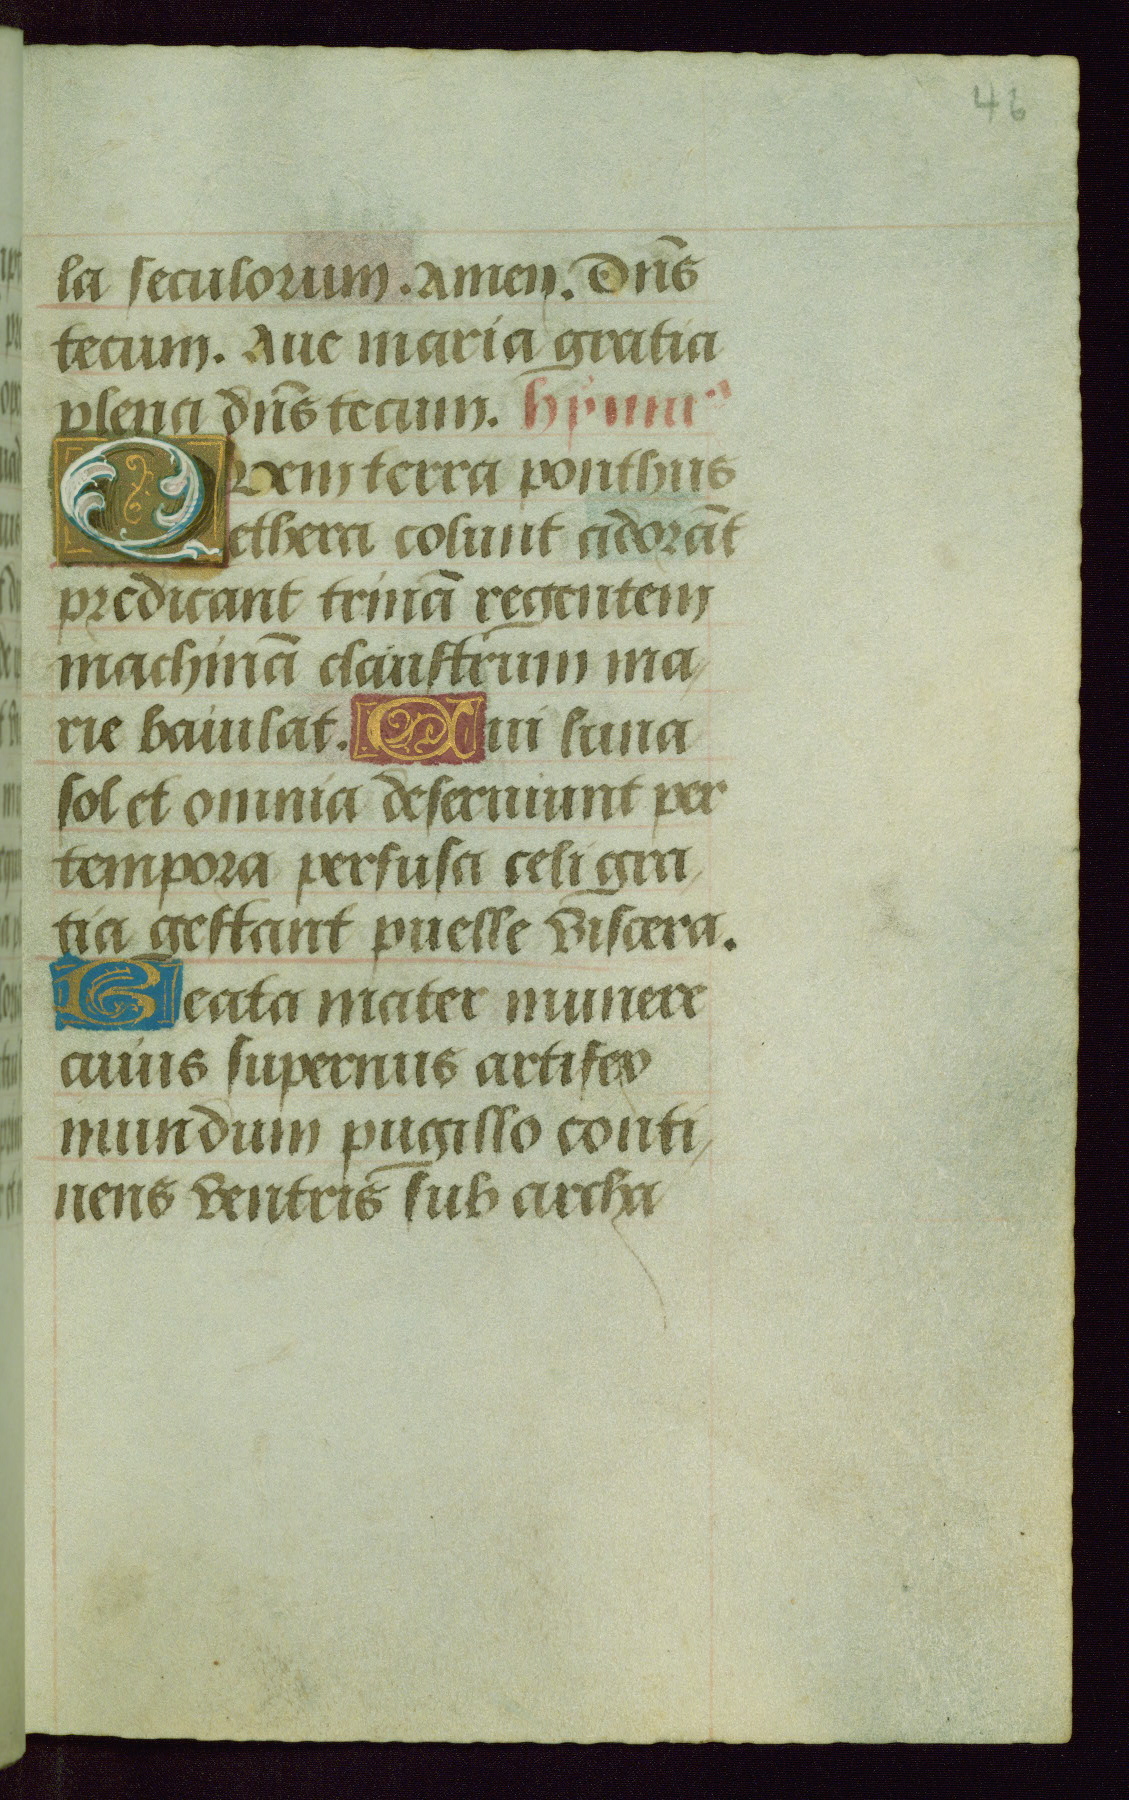 46
la seculorum. Amen. Dn̄s
tecum. Aue maria gratia
plena dn̄s tecum. hÿmnꝰ
Quem terra ponthus
ethera colunt adorāt
predicant trinā regentem
machinā claustrum ma
rie baiulat. Cui luna
sol et omnia deseruiunt per
tempora perfusa celi gra
tia gestant puelle viscera.
Beata mater munere
cuius supernus artifex
mundum pugillo conti
nens ventris sub archa